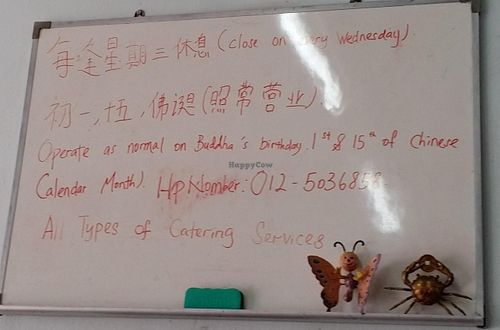 每逢星期三休息 (close on every Wednesday)
初一,十五,佛诞 (照常营业).
Operate as normal on Buddha's birthday. 1st & 15th of chinese
Calendar Month). Hp Nomber: 012-5036858
All Types of Catering Services
HappyCow